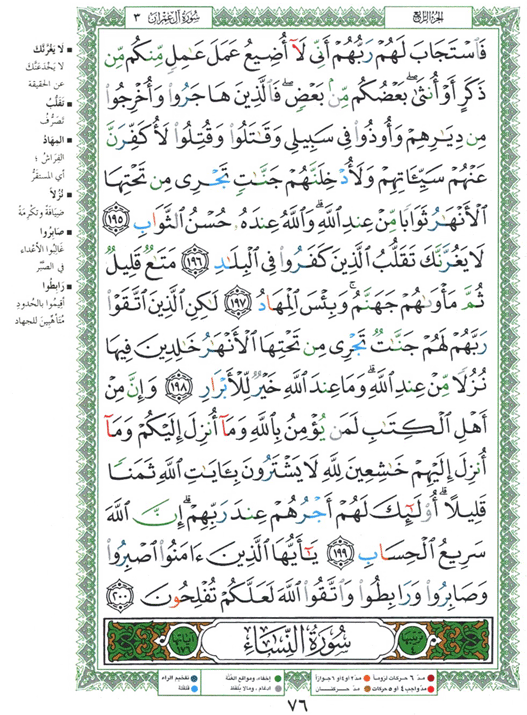 الجزء الرابع
سورة آل عمران ٣
فَاسْتَجَابَ لَهُمْ رَبُّهُمْ أَنِّي لَا أُضِيعُ عَمَلَ عَامِلٍ مِّنكُم مِّن
ذَكَرٍ أَوْ أُنثَىٰ ۖ بَعْضُكُم مِّنۢ بَعْضٍ ۖ فَالَّذِينَ هَاجَرُوا وَأُخْرِجُوا
مِن دِيَارِهِمْ وَأُوذُوا فِي سَبِيلِي وَقَاتَلُوا وَقُتِلُوا لَأُكَفِّرَنَّ
عَنْهُمْ سَيِّئَاتِهِمْ وَلَأُدْخِلَنَّهُمْ جَنَّاتٍ تَجْرِي مِن تَحْتِهَا
الْأَنْهَارُ ثَوَابًا مِّنْ عِندِ اللَّهِ ۗ وَاللَّهُ عِندَهُ حُسْنُ الثَّوَابِ ١٩٥
لَا يَغُرَّنَّكَ تَقَلُّبُ الَّذِينَ كَفَرُوا فِي الْبِلَادِ ١٩٦ مَتَاعٌ قَلِيلٌ
ثُمَّ مَأْوَاهُمْ جَهَنَّمُ ۚ وَبِئْسَ الْمِهَادُ ١٩٧ لَٰكِنِ الَّذِينَ اتَّقَوْا
رَبَّهُمْ لَهُمْ جَنَّاتٌ تَجْرِي مِن تَحْتِهَا الْأَنْهَارُ خَالِدِينَ فِيهَا
نُزُلًا مِّنْ عِندِ اللَّهِ ۗ وَمَا عِندَ اللَّهِ خَيْرٌ لِّلْأَبْرَارِ ١٩٨ وَإِنَّ مِنْ
أَهْلِ الْكِتَابِ لَمَن يُؤْمِنُ بِاللَّهِ وَمَا أُنزِلَ إِلَيْكُمْ وَمَا
أُنزِلَ إِلَيْهِمْ خَاشِعِينَ لِلَّهِ لَا يَشْتَرُونَ بِآيَاتِ اللَّهِ ثَمَنًا
قَلِيلًا ۗ أُولَٰئِكَ لَهُمْ أَجْرُهُمْ عِندَ رَبِّهِمْ ۗ إِنَّ اللَّهَ
سَرِيعُ الْحِسَابِ ١٩٩ يَا أَيُّهَا الَّذِينَ ءَامَنُوا اصْبِرُوا
وَصَابِرُوا وَرَابِطُوا وَاتَّقُوا اللَّهَ لَعَلَّكُمْ تُفْلِحُونَ ٢٠٠
سُورَةُ النِّسَاءِ
ترتيبها ٤
آياتها ١٧٦
لا يَغُرَّنَّك
لا يَخْدَعَنَّك
عن الحقيقة
تَقَلُّبُ
تَصَرُّفُ
المِهَادُ
الفِرَاشُ ؛
أي المستقرُّ
نُزُلاً
ضيافة وتكرمة
صَابِرُوا
غالِبُوا الأعداء
في الصَّبْرِ
رَابِطُوا
أقيمُوا بالحُدودِ
مُتَأهِّبينَ للجهاد
مدّ ٦ حركات لزوماً
مدّ ٢ أو ٤ أو ٦ جوازاً
مدّ واجب ٤ أو ٥ حركات
مدّ حركتان
إخفاء، ومواقع الغُنَّة
ادغام، وما لا يُلفظ
تفخيم الراء
قلقلة
٧٦